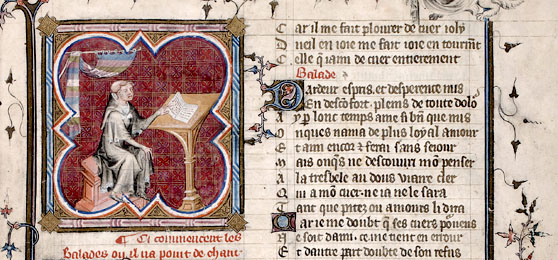 Ci commencent les
Balades ou il na point de chant
Car il me fait plourer de cuer ioly
Dueil en ioie me fait ioie en tourmt
Celle qi aim de cuer entierement
Balade
Dardeur espris. et desperence mis
En desconfort. plems de toute dolo
Ay p lonc temps ame si bn que mis
Onques nama de plus loyal amour
Et aim encor et ferai sans seiour
Mais onqs ne descouvri mo penser
A la tresbele au dous viaire cler
Qui a mo cuer. ne ia ne le sara
Tant que pitez ou amours li dira
Car ie me doubt q ses cuers
Ne soit dami. ce me tient en errour
Et dautre part doubt de son refus